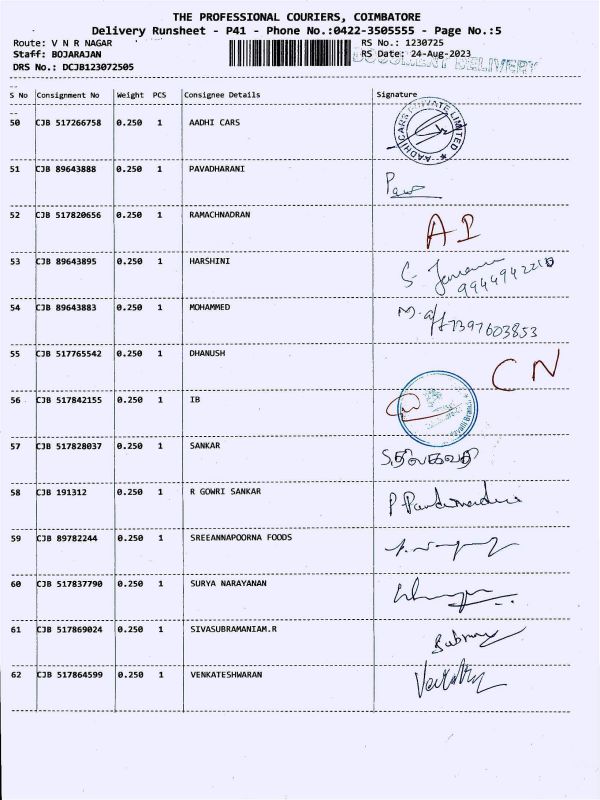 THE PROFESSIONAL COURIERS, COIMBATORE
Delivery Runsheet - P41 - Phone No.:0422-3505555 - Page No.:5
Route: V N R NAGAR RS No.: 1230725
Staff: BOJARAJAN RS Date: 24-Aug-2023
DOCUMENT DELIVERY
DRS No.: DCJB123072505
S No Consignment No Weight PCS Consignee Details Signature
50 CJB 517266758 0.250 1 AADHI CARS
AADHI CARS PRIVATE LIMITED
51 CJB 89643888 0.250 1 PAVADHARANI
52 CJB 517820656 0.250 1 RAMACHNADRAN
53 CJB 89643895 0.250 1 HARSHINI S.
9944942210
54 CJB 89643883 0.250 1 MOHAMMED
7397603853
55 CJB 517765542 0.250 1 DHANUSH CN
56 CJB 517842155 0.250 1 IB
57 CJB 517828037 0.250 1 SANKAR
58 CJB 191312 0.250 1 R GOWRI SANKAR
59 CJB 89782244 0.250 1 SREEANNAPOORNA FOODS
60 CJB 517837790 0.250 1 SURYA NARAYANAN
61 CJB 517869024 0.250 1 SIVASUBRAMANIAM.R
62 CJB 517864599 0.250 1 VENKATESHWARAN